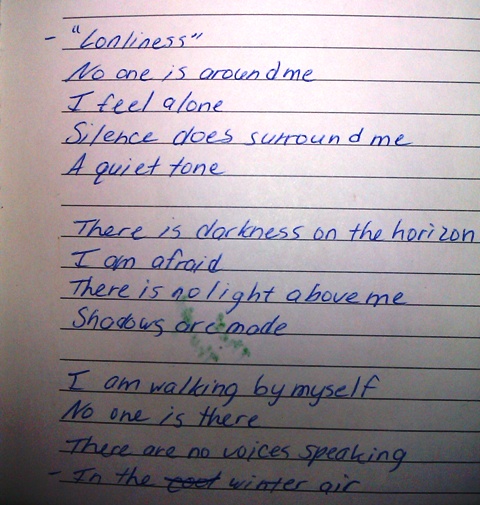 - "Lonliness"
No one is around me
I feel alone
Silence does surround me
A quiet tone
There is darkness on the horizon
I am afraid
There is no light above me
Shadows are made
I am walking by myself
No one is there
There are no voices speaking
- In the cool winter air